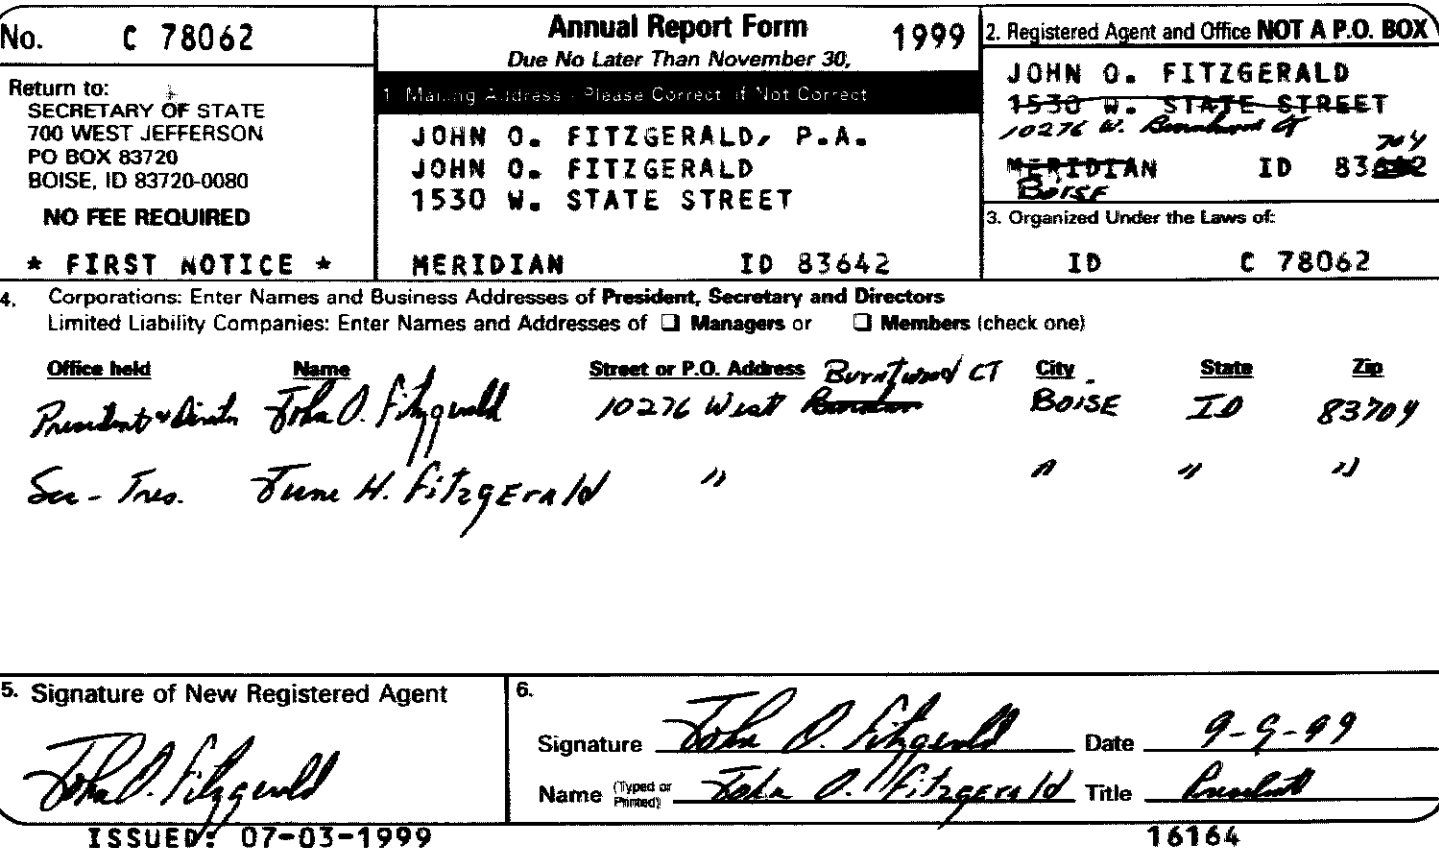 No. C 78062
Annual Report Form 1999
Due No Later Than November 30,
Return to:
SECRETARY OF STATE
700 WEST JEFFERSON
PO BOX 83720
BOISE, ID 83720-0080
NO FEE REQUIRED
* FIRST NOTICE *
1. Mailing Address - Please Correct if Not Correct
JOHN O. FITZGERALD, P.A.
JOHN O. FITZGERALD
1530 W. STATE STREET
MERIDIAN ID 83642
2. Registered Agent and Office NOT A P.O. BOX
JOHN O. FITZGERALD
1530 W. STATE STREET
10276 W. Burntwood CT
704
MERIDIAN ID 83642
BOISE
3. Organized Under the Laws of:
ID C 78062
4. Corporations: Enter Names and Business Addresses of President, Secretary and Directors
Limited Liability Companies: Enter Names and Addresses of ❑ Managers or ❑ Members (check one)
Office held Name Street or P.O. Address City State Zip
Burntwood CT
President & Director John O. Fitzgerald 10276 West BOISE ID 83704
Sec - Tres. June H. FitzgErald " " " "
5. Signature of New Registered Agent
John O. Fitzgerald
6.
Signature John O. Fitzgerald Date 9-9-99
Name (Typed or Printed) John O. FitzgErald Title President
ISSUED: 07-03-1999
16164